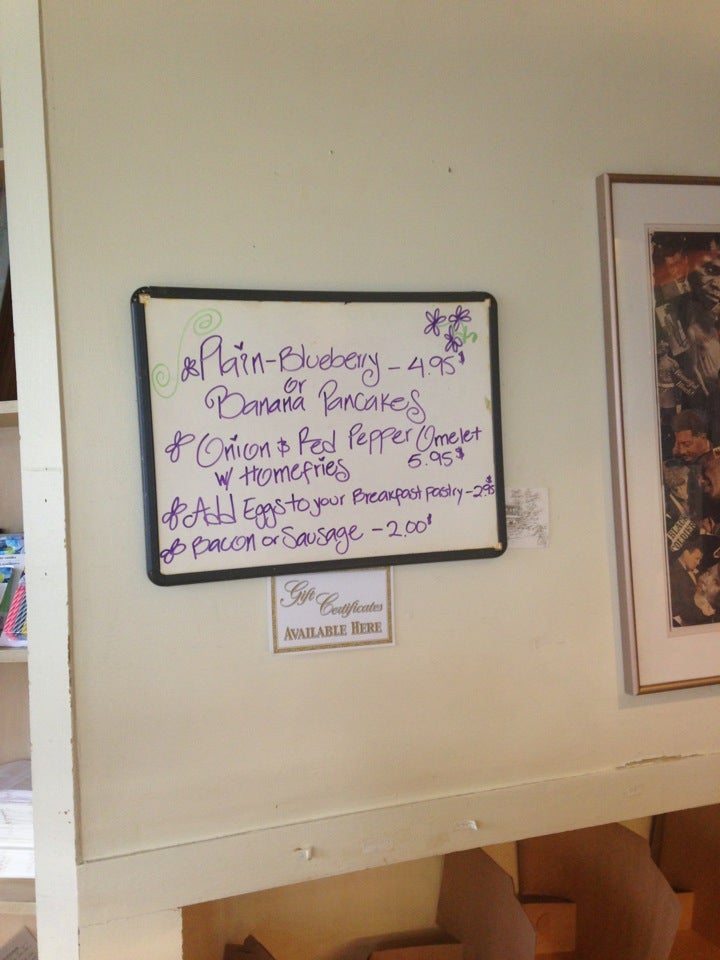 Plain-Blueberry - 4.95$
or
Banana Pancakes
Onion & Red Pepper Omelet
w/ Homefries 5.95$
Add Eggs to your Breakfast pastry - 2.95$
Bacon or Sausage - 2.00$
Gift Certificates
AVAILABLE HERE